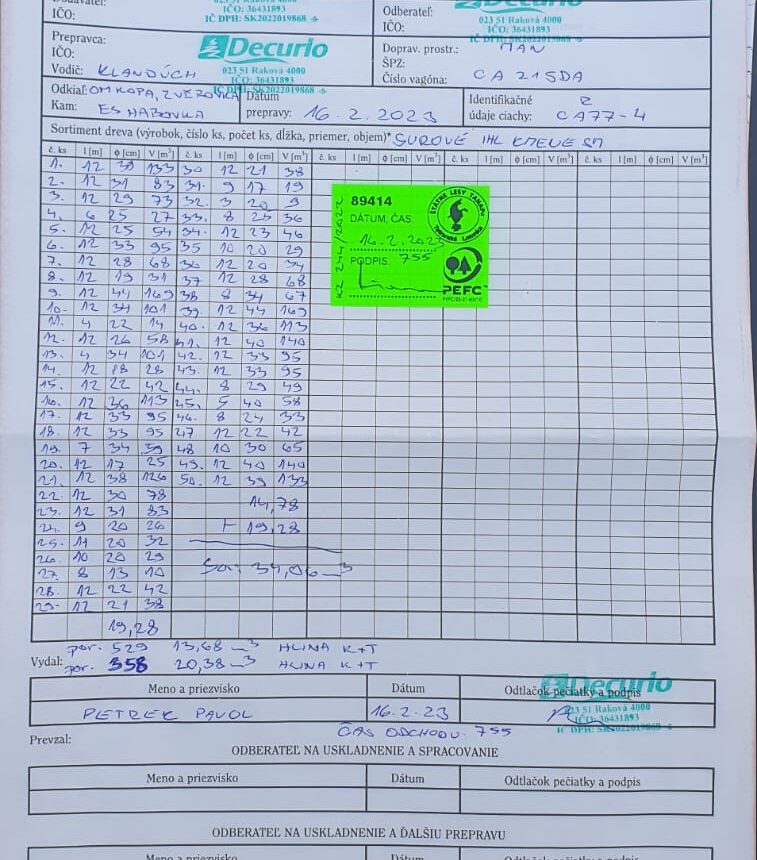 Dodávateľ:
IČO:
IČO: 36431893
IČ DPH: SK2022019868 -6-
Odberateľ:
IČO:
Decurio
023 51 Raková 4000
IČO: 36431893
IČ DPH: SK2022019868 -6-
Prepravca:
IČO:
Vodič: KLANDÚCH
Decurio
023 51 Raková 4000
IČO: 36431893
IČ DPH: SK2022019868 -6-
Doprav. prostr.: MAN
ŠPZ:
Číslo vagóna: CA 215DA
Odkiaľ: OM KOPA, ZVEROVKA
Kam: ES HABOVKA
Dátum
prepravy: 16.2.2023
Identifikačné 2
údaje ciachy: CA77-4
Sortiment dreva (výrobok, číslo ks, počet ks, dĺžka, priemer, objem)* SUROVÉ IHL KMENE SM
č. ks l [m] φ [cm] V [m³] č. ks l [m] φ [cm] V [m³] č. ks l [m] φ [cm] V [m³] č. ks l [m] φ [cm] V [m³]
1. 12 39 133 30 12 21 38
2. 12 31 83 31. 9 17 19
3. 12 29 73 32. 3 20 9
4. 6 25 27 33. 8 25 36
5. 12 25 54 34. 12 23 46
6. 12 33 95 35 10 20 29
7. 12 28 68 36 12 20 34
8. 12 19 31 37 12 28 68
9. 12 44 169 38 8 34 67
10. 12 34 101 39. 12 44 169
11. 4 22 14 40. 12 36 113
12. 12 26 58 41. 12 40 140
13. 4 34 101 42. 12 33 95
14. 12 18 28 43. 12 33 95
15. 12 22 42 44. 8 29 49
16. 12 36 113 45. 5 40 58
17. 12 33 95 46. 8 24 33
18. 12 33 95 47 12 22 42
19. 7 34 59 48 10 30 65
20. 12 17 25 49. 12 40 140
21. 12 38 126 50. 12 39 133
22. 12 30 78
23. 12 31 83 14,78
24. 9 20 26 + 19,28
25. 11 20 32
26. 10 20 29
27. 8 13 10 34,06 m3
28. 12 22 42
29. 12 21 38
19,28
89414
DÁTUM, ČAS:
16.2.2023
PODPIS: 755
ŠTÁTNE LESY TANAPu
PEFC
por. 529 13,68 m3 HLINA K+T
Vydal: por. 358 20,38 m3 HLINA K+T
Meno a priezvisko Dátum Odtlačok pečiatky a podpis
PETREK PAVOL 16.2.23
Decurio
023 51 Raková 4000
IČO: 36431893
IČ DPH: SK2022019868 -6-
Prevzal: ČAS ODCHODU: 755
ODBERATEĽ NA USKLADNENIE A SPRACOVANIE
Meno a priezvisko Dátum Odtlačok pečiatky a podpis
ODBERATEĽ NA USKLADNENIE A ĎALŠIU PREPRAVU
Meno a priezvisko Dátum Odtlačok pečiatky a podpis